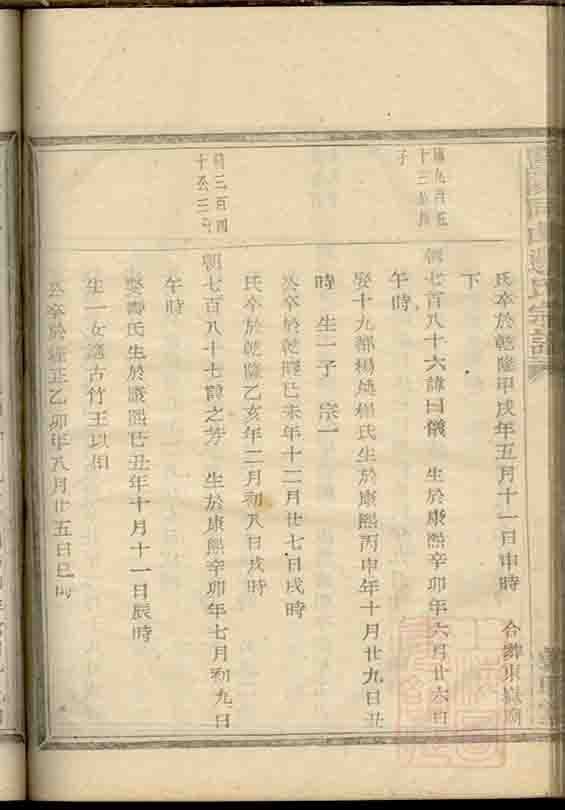 氏卒於乾隆甲戌年五月十一日申時 合葬東嶽廟
下
朝七百八十六諱曰儀 生於康熙辛卯年六月廿六日
午時
娶十九都楊燒程氏生於康熙丙申年十月廿九日丑
時 生一子 宗一
公卒於乾隆己未年十二月廿七日戌時
氏卒於乾隆乙亥年二月初八日戌時
十公三子
朝七百八十七諱之芳 生於康熙辛卯年七月初九日
午時
娶 氏生於康熙己丑年十月十一日辰時
生一女適古竹王以相
公卒於雍正乙卯年八月廿五日巳時